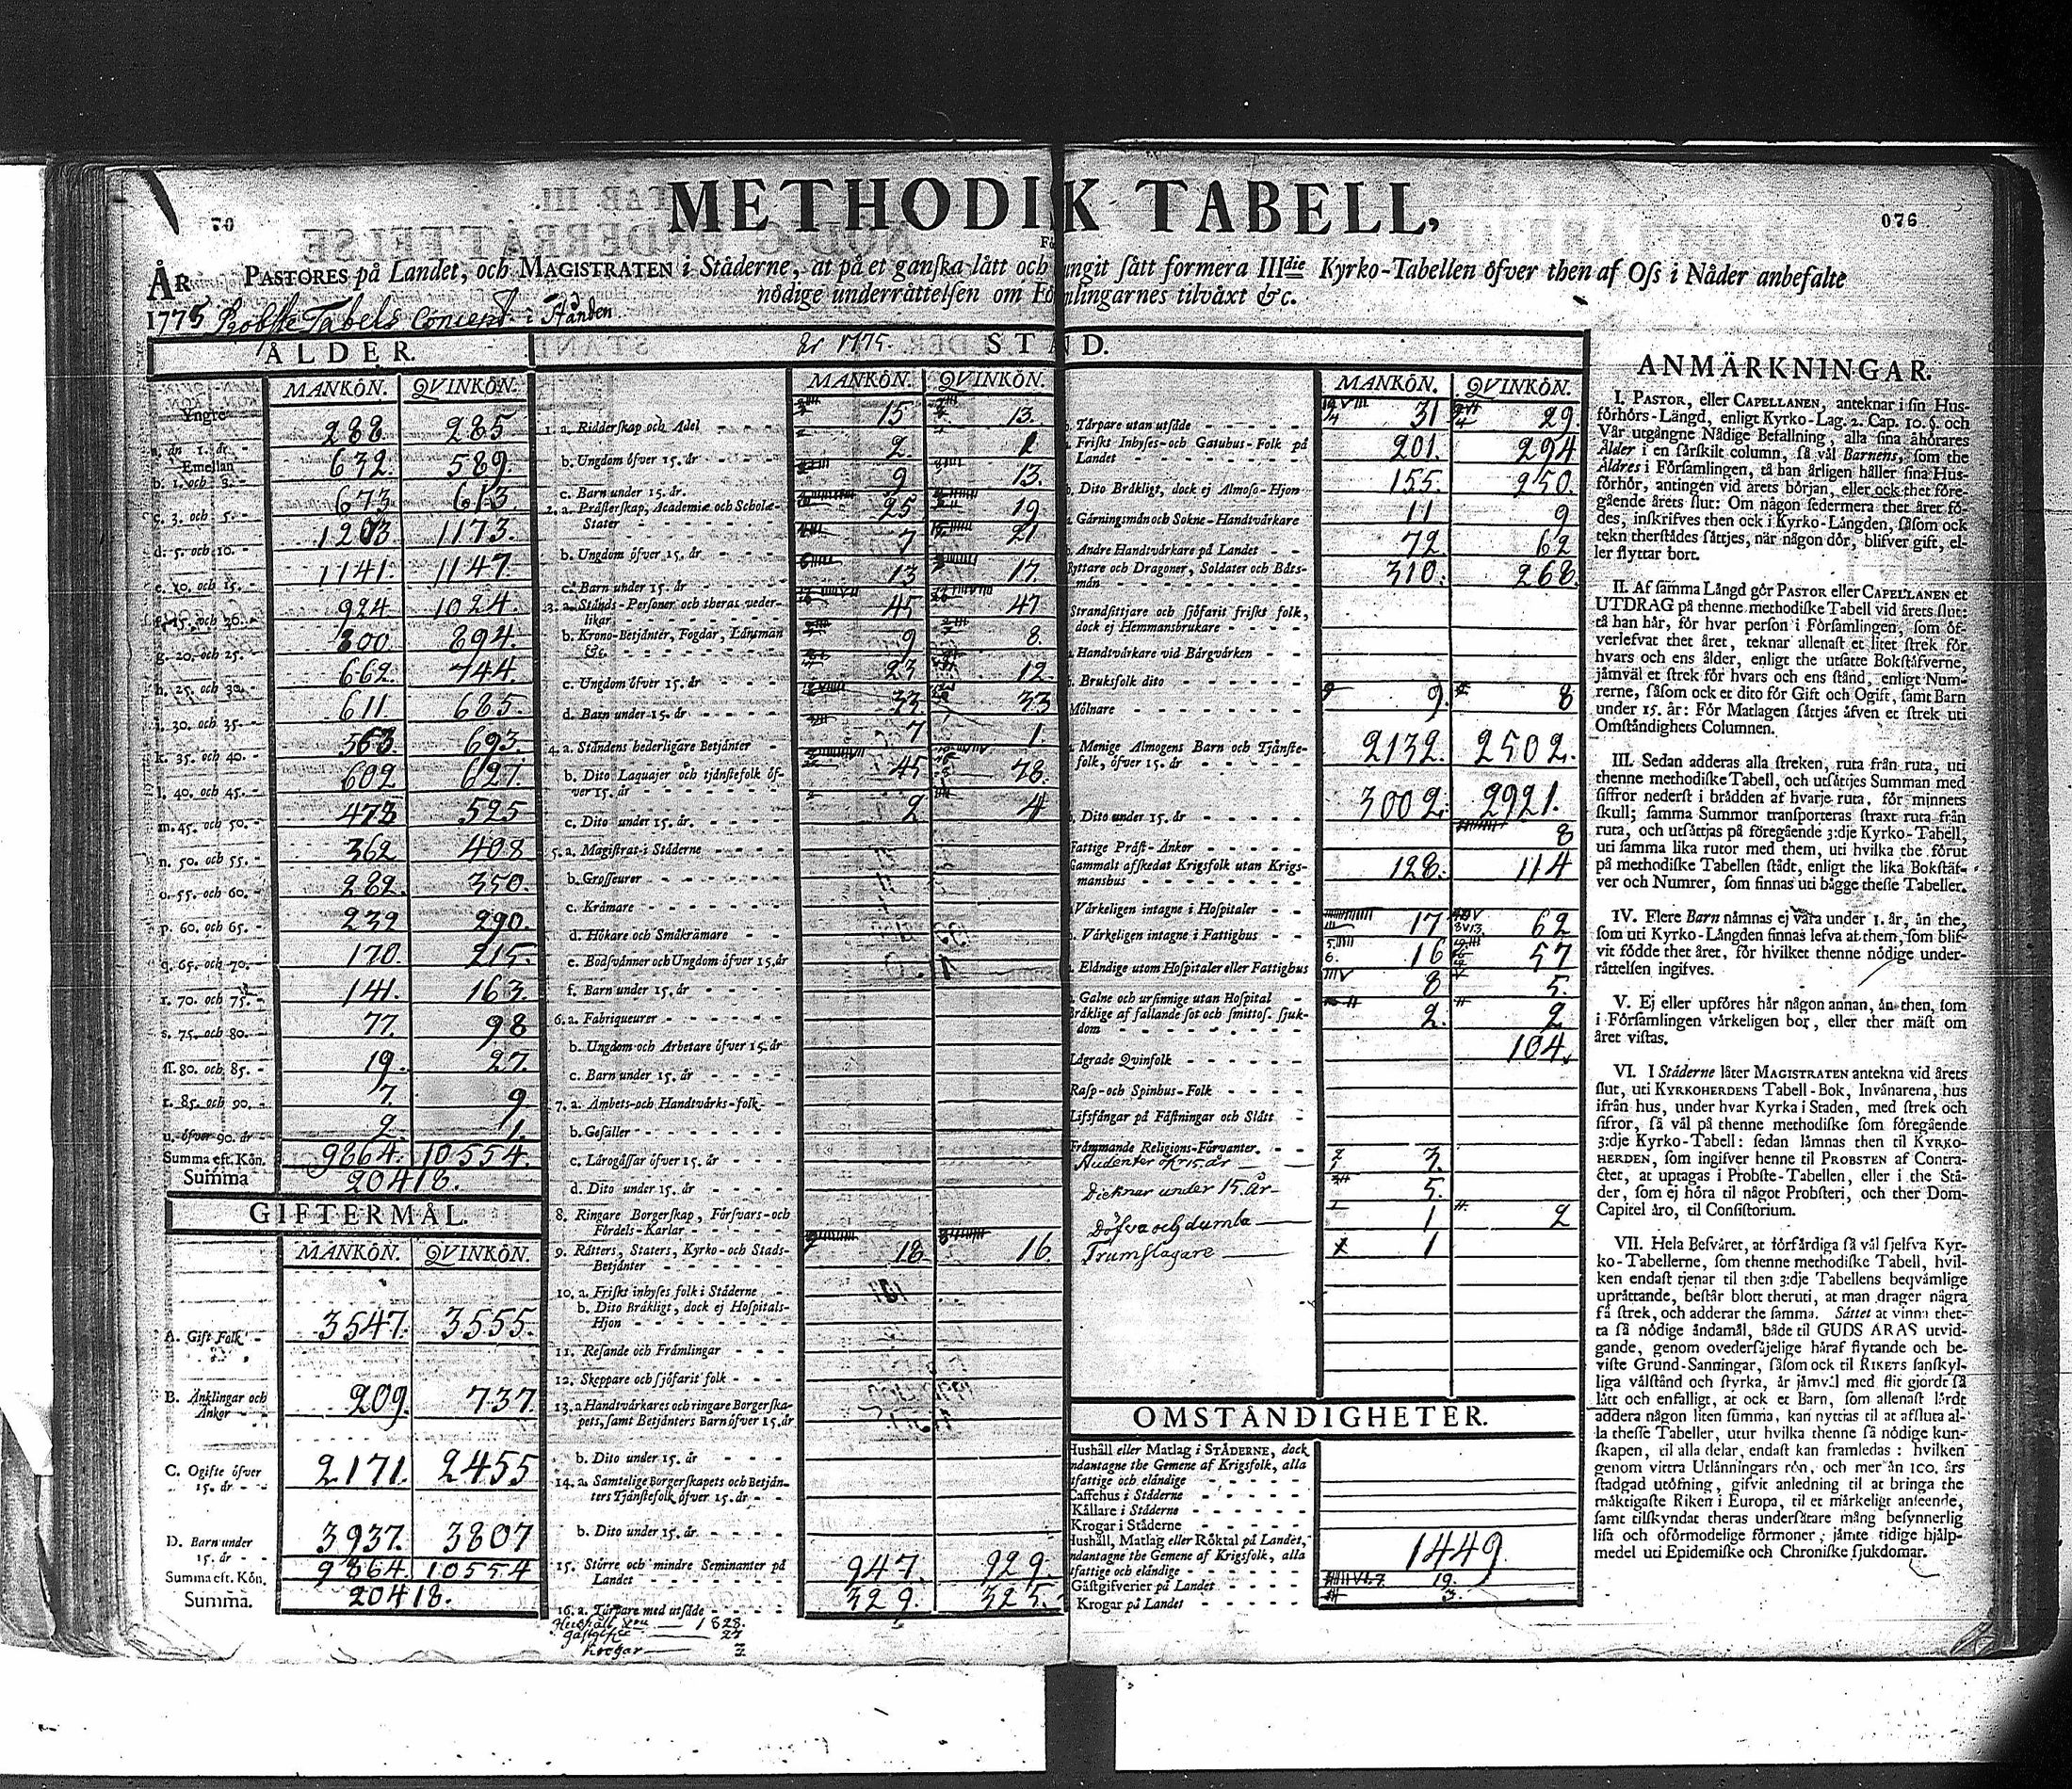 METHODIK TABELL,
70
076
ÅR PASTORES på Landet, och MAGISTRATEN i Städerne, at på et ganska lätt och ungit sätt formera IIIdie Kyrko-Tabellen öfver then af Oss i Nåder anbefalte
1775 nödige underrättelsen om Församlingarnes tilväxt &c.
Probste Tabels Concept i Stånden
ÅLDER.
MANKÖN. QVINKÖN.
Yngre
a. än 1. år - 288 285
Emellan
b. 1. och 3. - 632. 589.
c. 3. och 5. - 673 613
d. 5. och 10. - 1203 1173.
e. 10. och 15. - 1141. 1147.
f. 15. och 20. - 924 1024.
g. 20. och 25. - 800 894.
h. 25. och 30. - 662. 744.
i. 30. och 35. - 611 685.
k. 35. och 40. - 563. 693.
l. 40. och 45. - 602 627
m. 45. och 50. - 473 525
n. 50. och 55. - 362 408
o. 55. och 60. - 282. 350.
p. 60. och 65. - 232 290.
q. 65. och 70. - 170. 215.
r. 70. och 75. - 141. 163.
s. 75. och 80. - 77. 98
ss. 80. och 85. - 19. 27.
t. 85. och 90. - 7. 9
u. öfver 90. år - 2. 1.
Summa eft. Kön. 9864. 10554.
Summa 20418.
GIFTERMÅL.
MANKÖN. QVINKÖN.
A. Gift Folk - 3547. 3555.
B. Änklingar och
Änkor - - 209. 737.
C. Ogifte öfver
15. år - - 2171. 2455
D. Barn under
15. år - - 3937. 3807
Summa eft. Kön. 9864. 10554
Summa. 20418.
År 1775. STÅND.
MANKÖN. QVINKÖN.
1. a. Ridderskap och Adel 15 13.
b. Ungdom öfver 15. år 2. 1
c. Barn under 15. år. 9 13.
2. a. Prästerskap, Academiæ och Scholæ-
Stater 25 19
b. Ungdom öfver 15. år 7 21
c. Barn under 15. år 13 17.
3. a. Stånds-Personer och theras veder-
likar 45 47
b. Krono-Betjänter, Fogdar, Länsmän
&c. 9 8
c. Ungdom öfver 15. år 23 12.
d. Barn under 15. år 33 33
4. a. Ståndens hederligare Betjänter 7 1.
b. Dito Laquajer och tjänstefolk öf-
ver 15. år 45 78.
c. Dito under 15. år. 2 4
5. a. Magistrat i Städerne
b. Grosseurer
c. Krämare
d. Hökare och Småkrämare
e. Bodsvänner och Ungdom öfver 15. år
f. Barn under 15. år
6. a. Fabriqueurer
b. Ungdom och Arbetare öfver 15. år
c. Barn under 15. år
7. a. Ämbets- och Handtvärks-folk
b. Gesäller
c. Lärogåssar öfver 15. år
d. Dito under 15. år
8. Ringare Borgerskap, Försvars- och
Fördels-Karlar
9. Rätters, Staters, Kyrko- och Stads-
Betjänter 18 16.
10. a. Friskt inhyses folk i Städerne
b. Dito Bräkligt, dock ej Hospitals-
Hjon
11. Resande och Främlingar
12. Skeppare och sjöfarit folk
13. a Handtvärkares och ringare Borgerska-
pets, samt Betjänters Barn öfver 15. år
b. Dito under 15. år
14. a. Samtelige Borgerskapets och Betjän-
ters Tjänstefolk öfver 15. år
b. Dito under 15. år.
15. Större och mindre Seminanter på
Landet 947. 929.
16. a. Tårpare med utsäde 329. 325.
Hushåll 1828.
Gästgif 27
krogar 3
MANKÖN. QVINKÖN.
b. Tårpare utan utsäde 31 29
Friskt Inhyses- och Gatuhus-Folk på
Landet 201. 294
b. Dito Bräkligt, dock ej Almoso-Hjon 155. 250.
Gärningsmän och Sokne-Handtvärkare 11 9
b. Andre Handtvärkare på Landet 72. 62
Ryttare och Dragoner, Soldater och Båts-
män 310. 268.
Strandsittjare och sjöfarit friskt folk,
dock ej Hemmansbrukare
Handtvärkare vid Bärgvärken
b. Bruksfolk dito
Mölnare 9. 8
Menige Almogens Barn och Tjänste-
folk, öfver 15. år 2132. 2502.
b. Dito under 15. år 3002. 2921.
Fattige Präst-Änkor 8
Gammalt afskedat Krigsfolk utan Krigs-
manshus 128. 114
Värkeligen intagne i Hospitaler
b. Värkeligen intagne i Fattighus 17 62
Eländige utom Hospitaler eller Fattighus 16 57
Galne och ursinnige utan Hospital 8 5.
Bräklige af fallande sot och smittos. sjuk-
dom 2. 2
Lägrade Qvinfolk 104.
Rasp- och Spinhus-Folk
Lifsfångar på Fästningar och Slått
Främmande Religions-Förvanter.
Studenter öfr 15 år 3.
Dieknar under 15. år 5.
Döfva och dumba 1 2
Trumslagare 1
OMSTÄNDIGHETER.
Hushåll eller Matlag i STÄDERNE, dock
undantagne the Gemene af Krigsfolk, alla
utfattige och eländige
Caffehus i Städerne
Källare i Städerne
Krogar i Städerne
Hushåll, Matlag eller Röktal på Landet,
undantagne the Gemene af Krigsfolk, alla
utfattige och eländige 1449.
Gästgifverier på Landet 19.
Krogar på Landet 3.
ANMÄRKNINGAR.
I. PASTOR, eller CAPELLANEN, anteknar i sin Hus-
förhörs-Längd, enligt Kyrko-Lag. 2. Cap. 10. §. och
Vår utgångne Nådige Befallning, alla sina åhörares
Ålder i en särskilt column, så väl Barnens, som the
Äldres i Församlingen, tå han årligen håller sina Hus-
förhör, antingen vid årets början, eller ock thet före-
gående årets slut: Om någon sedermera thet året fö-
des, inskrifves then ock i Kyrko-Längden, såsom ock
tekn therstädes sättjes, när någon dör, blifver gift, el-
ler flyttar bort.
II. Af samma Längd gör PASTOR eller CAPELLANEN et
UTDRAG på thenne methodiske Tabell vid årets slut:
tå han här, för hvar person i Församlingen, som öf-
verlefvat thet året, teknar allenast et litet strek för
hvars och ens ålder, enligt the utsatte Bokstäfverne,
jämväl et strek för hvars och ens stånd, enligt Num-
rerne, såsom ock et dito för Gift och Ogift, samt Barn
under 15. år: För Matlagen sättjes äfven et strek uti
Omständighets Columnen.
III. Sedan adderas alla streken, ruta från ruta, uti
thenne methodiske Tabell, och utsättjes Summan med
siffror nederst i brädden af hvarje ruta, för minnets
skull; samma Summor transporteras straxt ruta från
ruta, och utsättjas på föregående 3:dje Kyrko-Tabell,
uti samma lika rutor med them, uti hvilka the förut
på methodiske Tabellen städt, enligt the lika Bokstäf-
ver och Numrer, som finnas uti bägge thesse Tabeller.
IV. Flere Barn nämnas ej vara under 1. år, än the,
som uti Kyrko-Längden finnas lefva at them, som blif-
vit födde thet året, för hvilket thenne nödige under-
rättelsen ingifves.
V. Ej eller upföres här någon annan, än then, som
i Församlingen värkeligen bor, eller ther mäst om
året vistas.
VI. I Städerne låter MAGISTRATEN antekna vid årets
slut, uti KYRKOHERDENS Tabell-Bok, Invånarena, hus
ifrån hus, under hvar Kyrka i Staden, med strek och
sifror, så väl på thenne methodiske som föregående
3:dje Kyrko-Tabell: sedan lämnas then til KYRKO-
HERDEN, som ingifver henne til PROBSTEN af Contra-
ctet, at uptagas i Probste-Tabellen, eller i the Stä-
der, som ej höra til något Probsteri, och ther Dom-
Capitel äro, til Consistorium.
VII. Hela Besväret, at förfärdiga så väl sjelfva Kyr-
ko-Tabellerne, som thenne methodiske Tabell, hvil-
ken endast tjenar til then 3:dje Tabellens beqvämlige
uprättande, består blott theruti, at man drager några
få strek, och adderar the samma. Sättet at vinna thet-
ta så nödige ändamål, både til GUDS ÄRAS utvid-
gande, genom ovedersäjelige häraf flytande och be-
viste Grund-Sanningar, såsom ock til RIKETS sanskyl-
liga välstånd och styrka, är jämväl med flit gjordt så
lätt och enfalligt, at ock et Barn, som allenast lärdt
addera någon liten summa, kan nyttias til at afsluta al-
la thesse Tabeller, utur hvilka thenne så nödige kun-
skapen, til alla delar, endast kan framledas: hvilken
genom vittra Utlänningars rön, och mer än 100. års
stadgad utöfning, gifvit anledning til at bringa the
mäktigaste Riken i Europa, til et märkeligt anseende,
samt tilskyndat theras undersåtare mång besynnerlig
lisa och oförmodelige förmoner; jämte tidige hjälp-
medel uti Epidemiske och Chroniske sjukdomar.